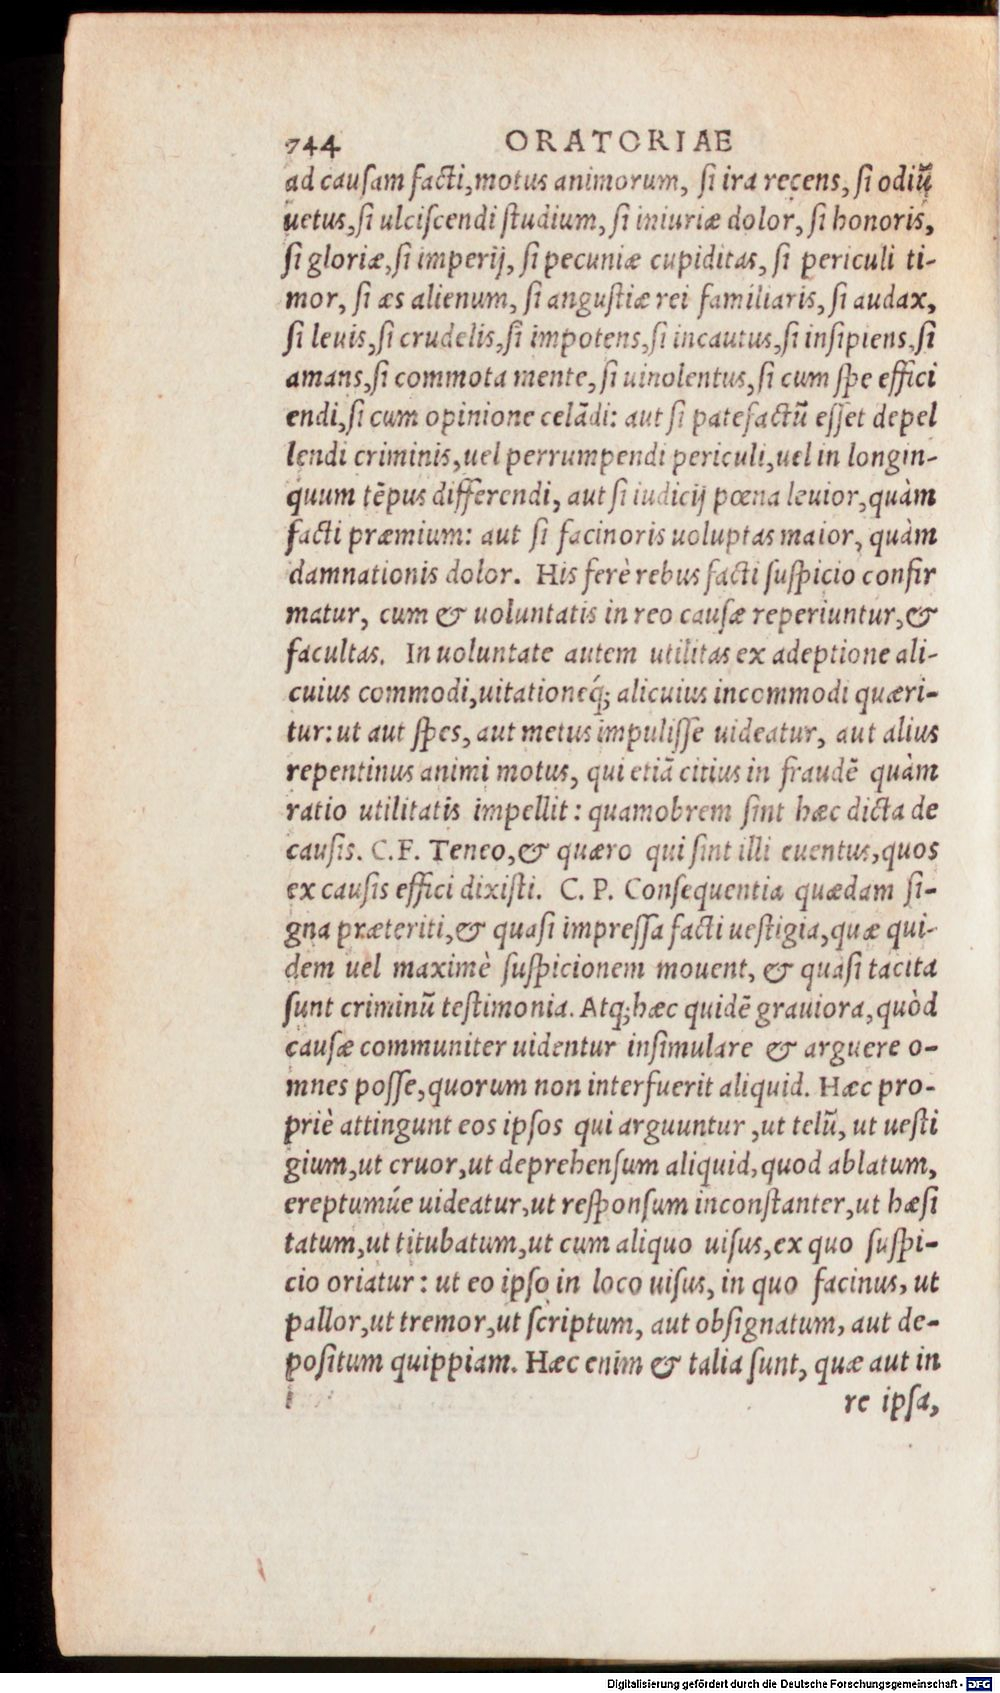 744 ORATORIAE
ad cauſam facti, motus animorum, ſi ira recens, ſi odiũ
uetus, ſi ulciſcendi ſtudium, ſi iniuriæ dolor, ſi honoris,
ſi gloriæ, ſi imperij, ſi pecuniæ cupiditas, ſi periculi ti-
mor, ſi æs alienum, ſi anguſtiæ rei familiaris, ſi audax,
ſi leuis, ſi crudelis, ſi impotens, ſi incautus, ſi inſipiens, ſi
amans, ſi commota mente, ſi uinolentus, ſi cum ſpe effici
endi, ſi cum opinione celãdi: aut ſi patefactũ eſſet depel
lendi criminis, uel perrumpendi periculi, uel in longin-
quum tẽpus differendi, aut ſi iudicij pœna leuior, quàm
facti præmium: aut ſi facinoris uoluptas maior, quàm
damnationis dolor. His ferè rebus facti ſuſpicio confir
matur, cum & uoluntatis in reo cauſæ reperiuntur, &
facultas. In uoluntate autem utilitas ex adeptione ali-
cuius commodi, uitationeq́; alicuius incommodi quæri-
tur: ut aut ſpes, aut metus impuliſſe uideatur, aut alius
repentinus animi motus, qui etiã citius in fraudẽ quàm
ratio utilitatis impellit: quamobrem ſint hæc dicta de
cauſis. C. F. Teneo, & quæro qui ſint illi euentus, quos
ex cauſis effici dixiſti. C. P. Conſequentia quædam ſi-
gna præteriti, & quaſi impreſſa facti ueſtigia, quæ qui-
dem uel maximè ſuſpicionem mouent, & quaſi tacita
ſunt criminũ teſtimonia. Atq; hæc quidẽ grauiora, quòd
cauſæ communiter uidentur inſimulare & arguere o-
mnes poſſe, quorum non interfuerit aliquid. Hæc pro-
priè attingunt eos ipſos qui arguuntur, ut telũ, ut ueſti
gium, ut cruor, ut deprehenſum aliquid, quod ablatum,
ereptumúe uideatur, ut reſponſum inconſtanter, ut hæſi
tatum, ut titubatum, ut cum aliquo uiſus, ex quo ſuſpi-
cio oriatur: ut eo ipſo in loco uiſus, in quo facinus, ut
pallor, ut tremor, ut ſcriptum, aut obſignatum, aut de-
poſitum quippiam. Hæc enim & talia ſunt, quæ aut in
re ipſa,
Digitalisierung gefördert durch die Deutsche Forschungsgemeinschaft - DFG